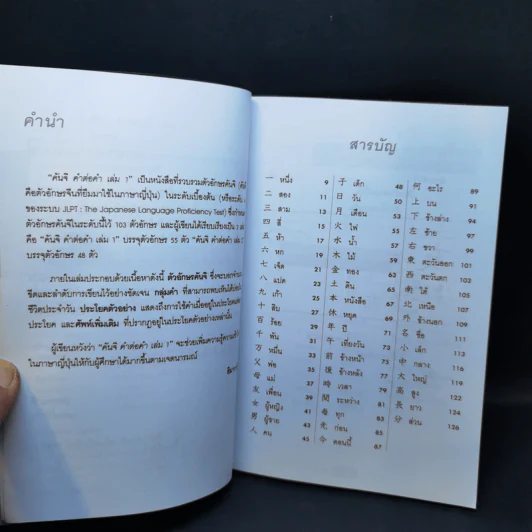 คำนำ
"คันจิ คำต่อคำ เล่ม 1" เป็นหนังสือที่รวบรวมตัวอักษรคันจิ
คือตัวอักษรจีนที่ยืมมาใช้ในภาษาญี่ปุ่น) ในระดับเบื้องต้น
ของระบบ JLPT : The Japanese Language Proficiency Test)
ตัวอักษรคันจิในระดับนี้ไว้ 103 ตัวอักษร และผู้เขียนได้เรียบเรียงเป็น 2
คือ "คันจิ คำต่อคำ เล่ม 1" บรรจุตัวอักษร 55 ตัว "คันจิ คำต่อคำ
บรรจุตัวอักษร 48 ตัว
ภายในเล่มประกอบด้วยเนื้อหาดังนี้ ตัวอักษรคันจิ
ขีดและลำดับการเขียนไว้อย่างชัดเจน กลุ่มคำ ที่สามารถพบเห็นได้
ชีวิตประจำวัน ประโยคตัวอย่าง แสดงถึงการใช้คำเมื่ออยู่ในประโยค
ประโยค และศัพท์เพิ่มเติม ที่ปรากฏอยู่ในประโยคตัวอย่างเหล่านั้น
ผู้เขียนหวังว่า "คันจิ คำต่อคำ เล่ม 1" จะช่วยเพิ่มความรู้
ในภาษาญี่ปุ่นให้กับผู้ศึกษาได้มากขึ้นตามเจตนารมณ์
สารบัญ
一 หนึ่ง 9
二 สอง 11
三 สาม 13
四 สี่ 15
五 ห้า 17
六 หก 19
七 เจ็ด 21
八 แปด 23
九 เก้า 25
十 สิบ 27
百 ร้อย 29
千 พัน 31
万 หมื่น 33
父 พ่อ 35
母 แม่ 37
友 เพื่อน 39
女 ผู้หญิง 41
男 ผู้ชาย 43
人 คน 45
子 เด็ก 48
日 วัน 50
月 เดือน 53
火 ไฟ 55
水 น้ำ 57
木 ไม้ 60
金 ทอง 62
土 ดิน 64
本 หนังสือ 66
休 หยุด 68
年 ปี 69
午 เที่ยงวัน 71
前 ข้างหน้า 73
後 ข้างหลัง 75
時 เวลา 77
間 ระหว่าง 81
毎 ทุก 83
先 ก่อน 85
今 ตอนนี้ 87
何 อะไร 89
上 บน 91
下 ข้างล่าง 94
左 ซ้าย 97
右 ขวา 99
東 ตะวันออก 101
西 ตะวันตก 103
南 ใต้ 105
北 เหนือ 107
外 ข้างนอก 109
名 ชื่อ 111
小 เล็ก 113
中 กลาง 116
大 ใหญ่ 119
高 สูง 121
長 ยาว 124
分 ส่วน 126